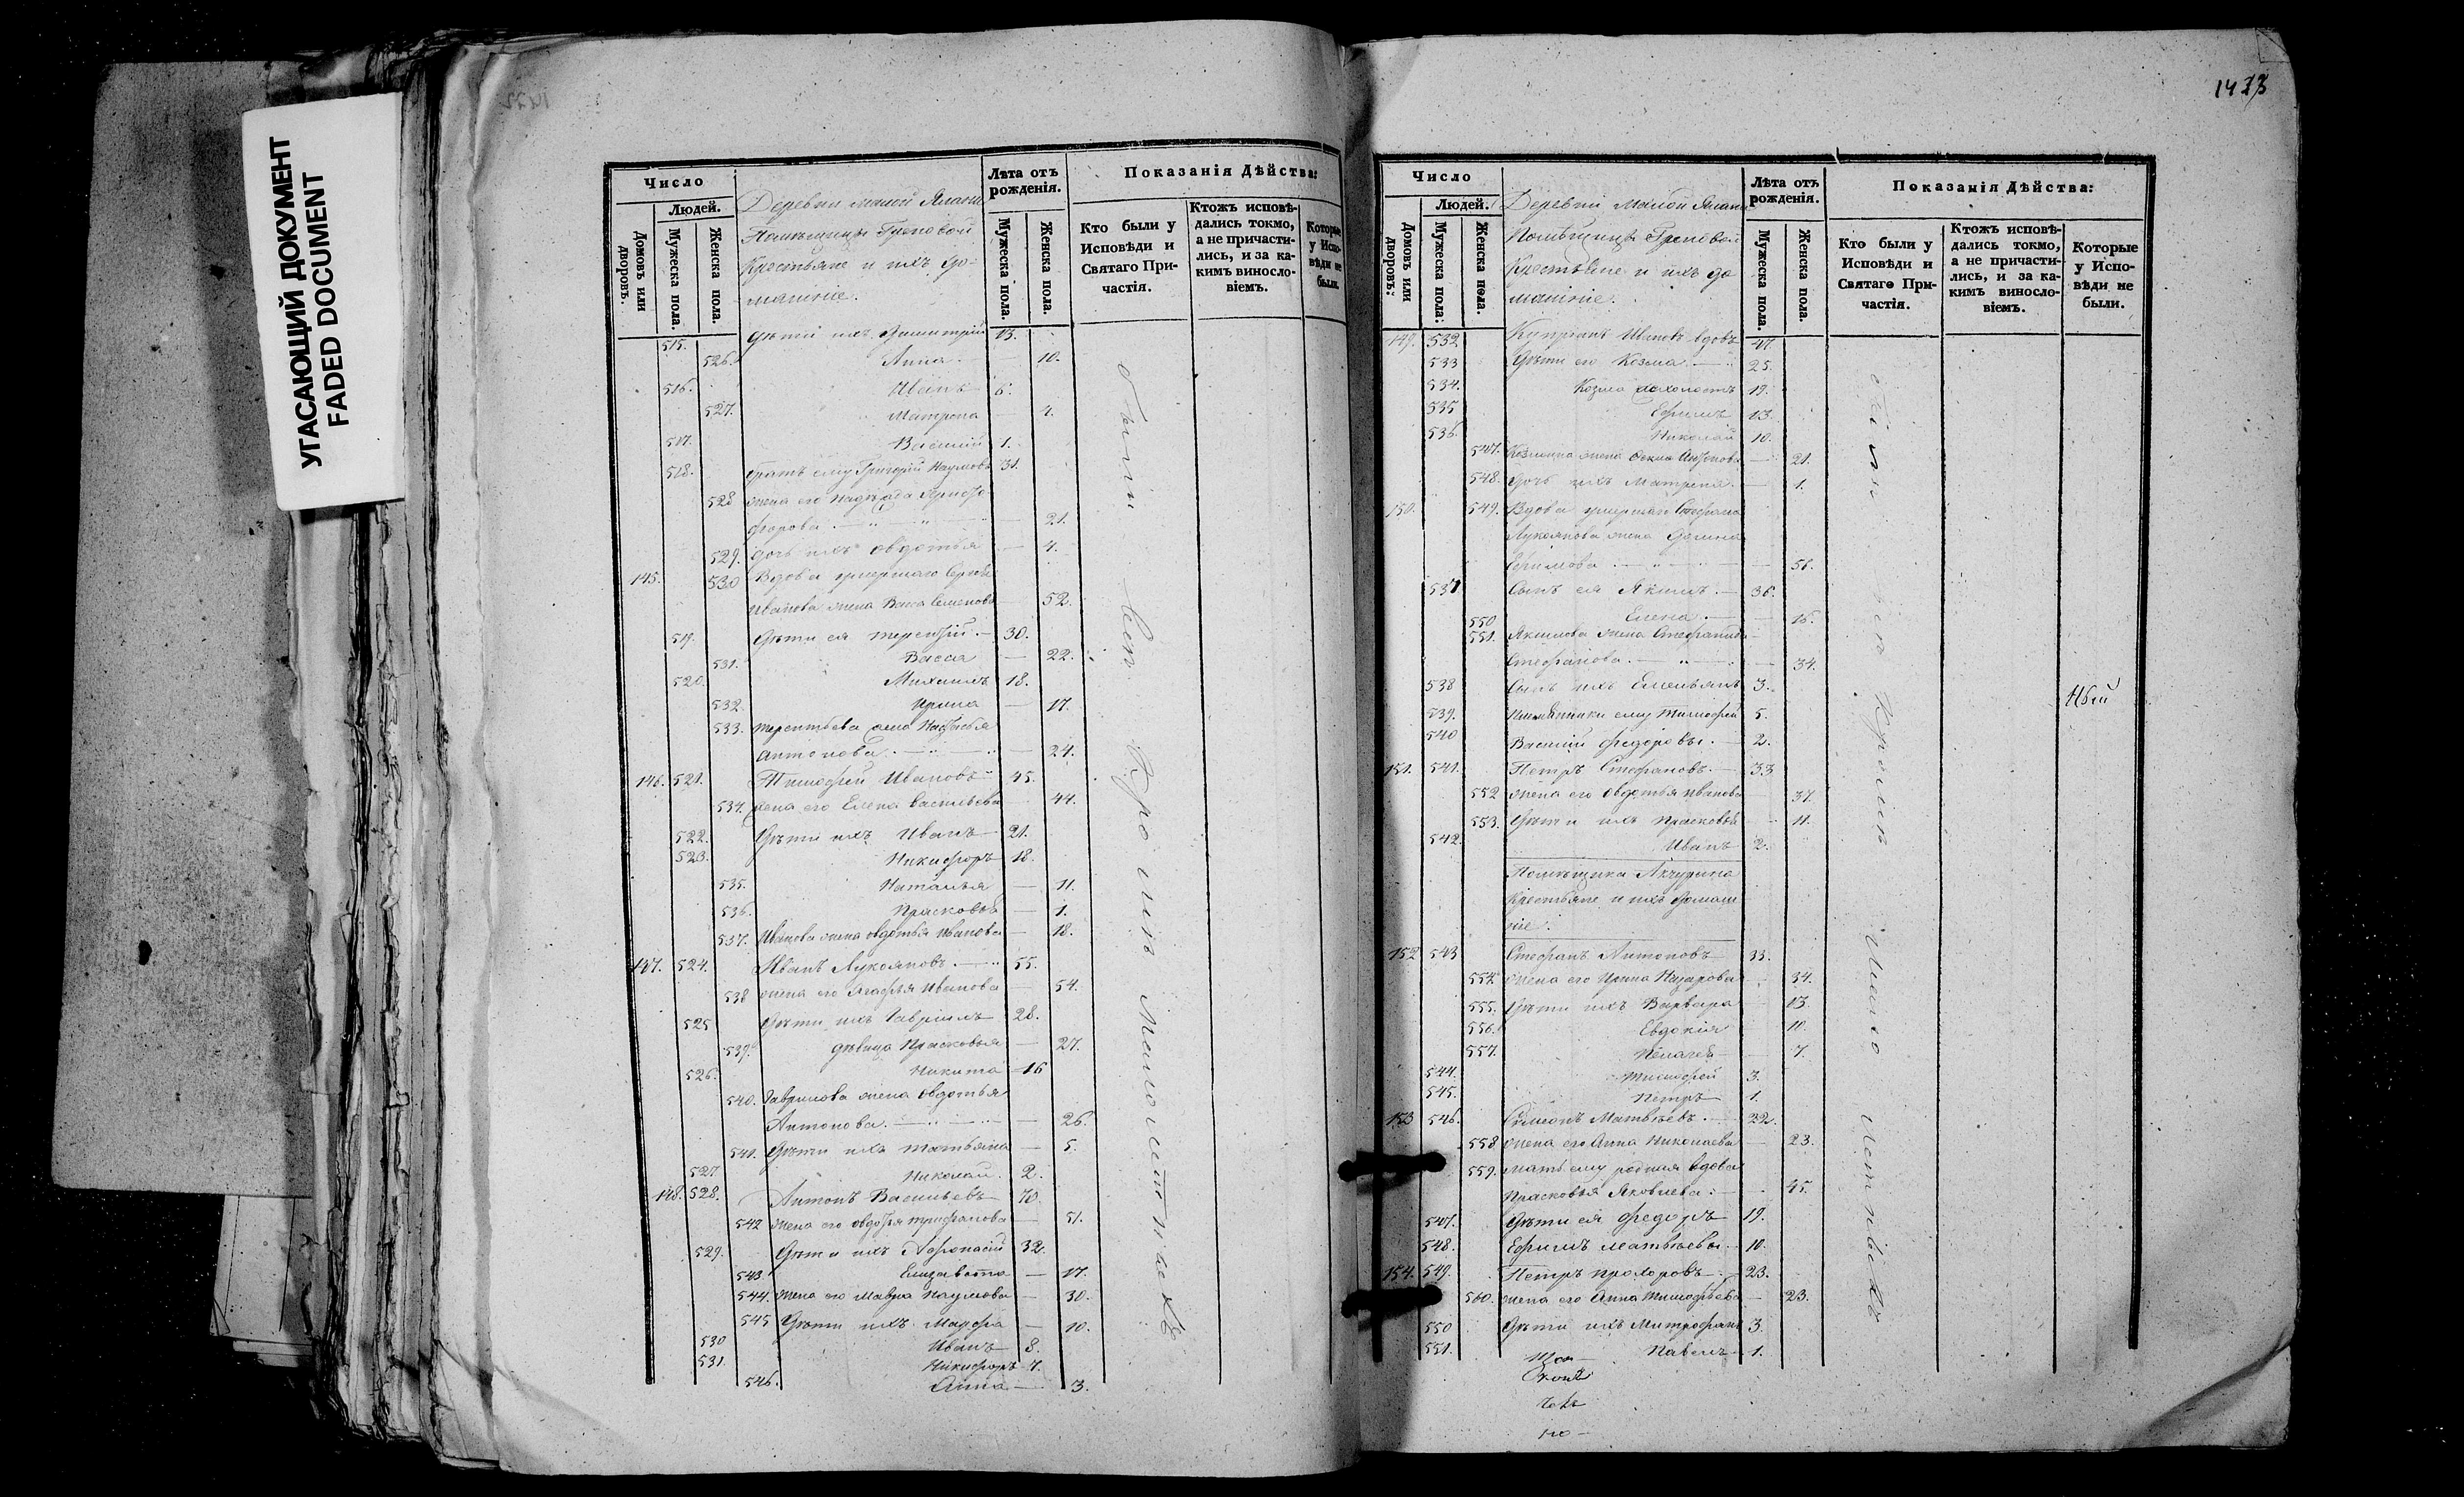 УГАСАЮЩИЙ ДОКУМЕНТ
FADED DOCUMENT
Число
Людей.
Домовъ или дворовъ.
Мужеска пола.
Женска пола.
Деревни малой
Помѣщицы
Крестьяне и ихъ до-
машніе.
Лѣта отъ рожденія.
Мужеска пола.
Женска пола.
Показанія Дѣйства:
Кто были у Исповѣди и Святаго Причастія.
Ктожъ исповѣдались токмо, а не причастились, и за какимъ винословіемъ.
Которые у Исповѣди не были.
515. дѣти ихъ Димитрій 13.
526. Анна 10.
516. Иванъ 6.
527. Матрона 4.
517. Василій 1.
518. братъ ему Григорій Наумовъ 31.
528 жена его Надежда
21.
529. дочь ихъ Овдотья 4.
145. 530 Вдова умершаго Сергѣя
Иванова жена Васса Семенова 52.
519. Дѣти ея Терентій 30.
531. Васса 22.
520. Михаилъ 18.
532. Ирина 17.
533. Терентьева жена Настасья
Антонова 24.
146. 521. Тимофей Ивановъ 45.
534. жена его Елена Васильева 44.
522. Дѣти ихъ Иванъ 21.
523. Никифоръ 18.
535. Наталья 11.
536. Прасковья 1.
537. Иванова жена Овдотья Иванова 18.
147. 524. Иванъ Лукояновъ 55.
538 жена его Агафья Иванова 54.
525 Дѣти ихъ Гавріилъ 28.
539. дѣвица Прасковья 27.
526. Никита 16
540. Гаврилова жена Овдотья
Антонова 26.
541. Дѣти ихъ Татьяна 5.
527 Николай 2.
148. 528. Антонъ Васильевъ 70.
542 жена его Овдотья Трифонова 51.
529. Дѣти ихъ Афонасій 32.
543 Елизавета 17.
544. жена его Мавра Наумова 30.
545 Дѣти ихъ Марфа 10.
530 Иванъ 8.
531. Никифоръ 7.
546. Анна 3.
были всѣ кромѣ малолѣтнихъ
1473
Число
Людей.
Домовъ или дворовъ:
Мужеска пола:
Женска пола:
Деревни малой
Помѣщицы
Крестьяне и ихъ до
машніе.
Лѣта отъ рожденія.
Мужеска пола.
Женска пола.
Показанія Дѣйства:
Кто были у Исповѣди и Святаго Причастія.
Ктожъ исповѣдались токмо, а не причастились, и за какимъ винословіемъ.
Которые у Исповѣди не были.
149. 532 Купріянъ Ивановъ вдовъ 47
533 Дѣти его Козьма 25.
534. Козма холостъ 19.
535 Ефимъ 13.
536. Николай 10.
547. Козмина жена Антонова 21.
548. Дочь ихъ Матрена 1.
150. 549. Вдова умершаго Стефана
Лукоянова жена
Ефимова 56.
537 Сынъ ея Якимъ 36.
550 Елена 16.
551. Якимова жена Стефанида
Стефанова 34.
538 Сынъ ихъ Емельянъ 3.
539. Племянники ему Тимофей 5.
540 Василий Федоровы 2.
151. 541. Петръ Стефановъ 33
552 жена его Овдотья Иванова 37.
553. Дѣти ихъ Прасковья 11.
542. Иванъ 2.
Помѣщика Акчурина
Крестьяне и ихъ домаш
ніе.
152 543 Стефанъ Антоновъ 33.
554 жена его Ирина Назарова 34.
555. Дѣти ихъ Варвара 13.
556. Евдокія 10.
557. Пелагея 7.
544. Тимофей 3.
545. Петръ 1.
153 546. Симонъ Матвѣевъ 32.
558 жена его Анна Николаева 23.
559. мать ему родная вдова
Прасковья Яковлева 45.
547. Дѣти ея Федоръ 19.
548. Ефимъ Матвѣевы 10.
154. 549. Петръ Прохоровъ 23.
560. жена его Анна Тимофѣева 23.
550 Дѣти ихъ Митрофанъ 3.
551. Павелъ 1.
кромѣ малолѣтнихъ